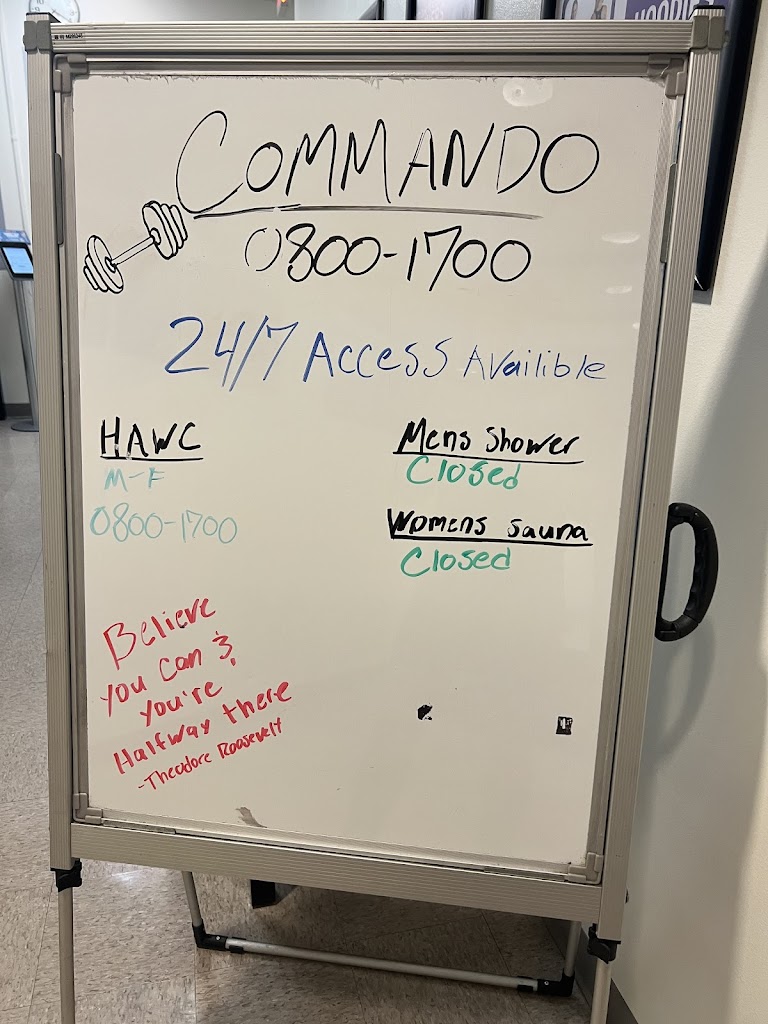 COMMANDO
0800-1700
24/7 Access Availible
HAWC
M-F
0800-1700
Mens Shower
Closed
Womens Sauna
Closed
Believe
you can &
you're
Halfway there
-Theodore Roosevelt